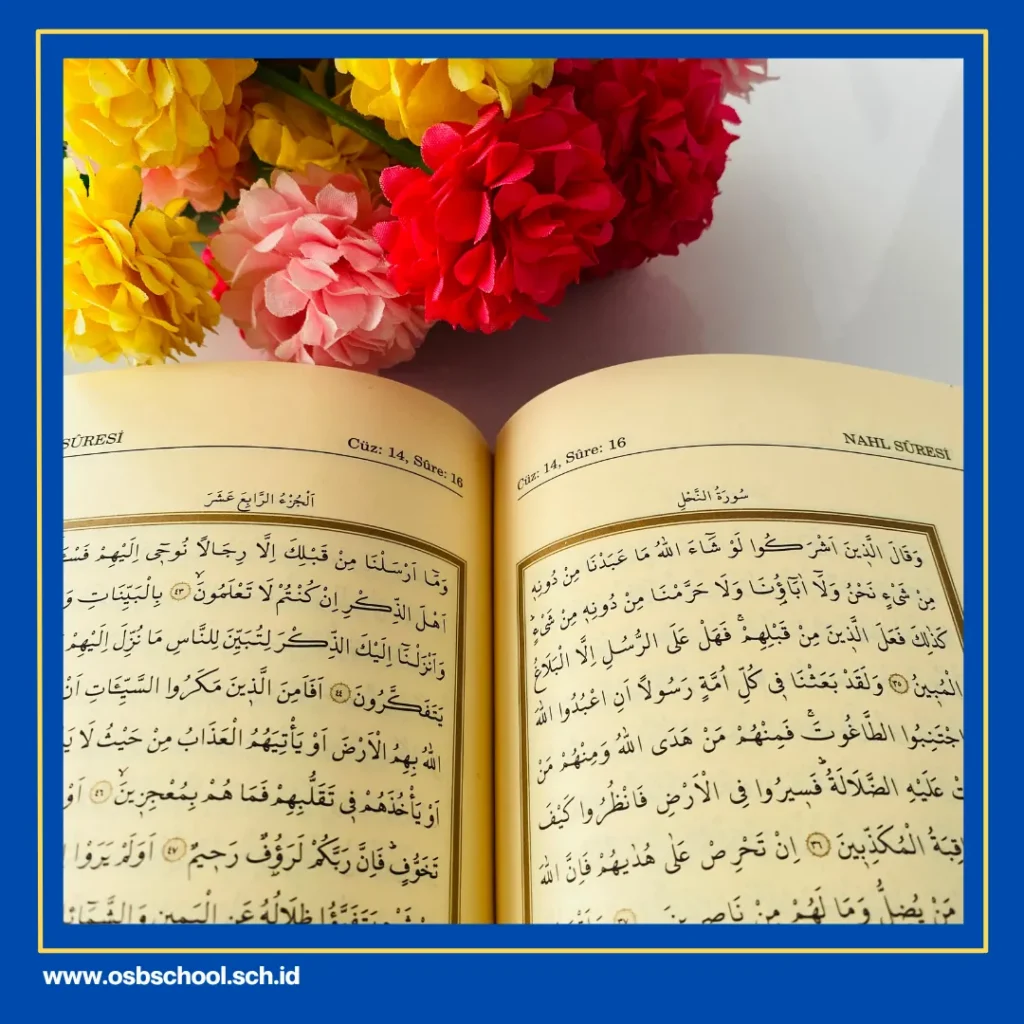 NAHL SÛRESİ
Cüz: 14, Sûre: 16
سُورَةُ النَّحْلِ
وَقَالَ الَّذٖينَ اَشْرَكُوا لَوْ شَٓاءَ اللّٰهُ مَا عَبَدْنَا مِنْ دُونِهٖ
مِنْ شَیْءٍ نَحْنُ وَلَٓا اٰبَٓاؤُنَا وَلَا حَرَّمْنَا مِنْ دُونِهٖ مِنْ شَیْءٍ
كَذٰلِكَ فَعَلَ الَّذٖينَ مِنْ قَبْلِهِمْۚ فَهَلْ عَلَى الرُّسُلِ اِلَّا الْبَلَاغُ
الْمُبٖينُ ﴿٣٥﴾ وَلَقَدْ بَعَثْنَا فٖى كُلِّ اُمَّةٍ رَسُولًا اَنِ اعْبُدُوا اللّٰهَ
اجْتَنِبُوا الطَّاغُوتَۚ فَمِنْهُمْ مَنْ هَدَى اللّٰهُ وَمِنْهُمْ مَنْ
عَلَيْهِ الضَّلَالَةُؕ فَسٖيرُوا فِى الْاَرْضِ فَانْظُرُوا كَيْفَ
الْمُكَذِّبٖينَ ﴿٣٦﴾ اِنْ تَحْرِصْ عَلٰى هُدٰيهُمْ فَاِنَّ اللّٰهَ
مَنْ يُضِلُّ وَمَا لَهُمْ مِنْ نَاصِرٖينَ
SÛRESİ
Cüz: 14, Sûre: 16
اَلْجُزْءُ الرَّابِعَ عَشَرَ
وَمَٓا اَرْسَلْنَا مِنْ قَبْلِكَ اِلَّا رِجَالًا نُوحٖٓى اِلَيْهِمْ
اَهْلَ الذِّكْرِ اِنْ كُنْتُمْ لَا تَعْلَمُونَۙ ﴿٤٣﴾ بِالْبَيِّنَاتِ
وَاَنْزَلْنَٓا اِلَيْكَ الذِّكْرَ لِتُبَيِّنَ لِلنَّاسِ مَا نُزِّلَ اِلَيْهِمْ
يَتَفَكَّرُونَ ﴿٤٤﴾ اَفَاَمِنَ الَّذٖينَ مَكَرُوا السَّيِّـَٔاتِ اَنْ
اللّٰهُ بِهِمُ الْاَرْضَ اَوْ يَاْتِيَهُمُ الْعَذَابُ مِنْ حَيْثُ لَا
اَوْ يَاْخُذَهُمْ فٖى تَقَلُّبِهِمْ فَمَا هُمْ بِمُعْجِزٖينَۙ ﴿٤٦﴾ اَوْ
تَخَوُّفٍؕ فَاِنَّ رَبَّكُمْ لَرَؤُفٌ رَحٖيمٌ ﴿٤٧﴾ اَوَلَمْ يَرَوْا
يَتَفَيَّؤُا ظِلَالُهُ عَنِ الْيَمٖينِ وَالشَّمَٓائِلِ
www.osbschool.sch.id